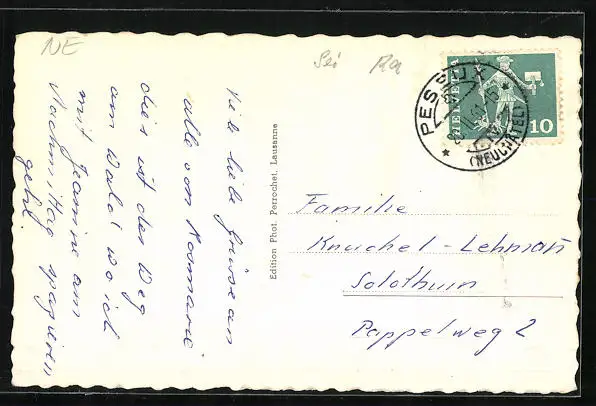 NE
Viele liebe Grüsse an
alle von Rosmarie
dies ist der Weg
am Wald wo ich
mit Jeanine am
Nachmittag spazieren
gehe.
Edition Phot. Perrochet, Lausanne
HELVETIA
10
PESEUX
(NEUCHÂTEL)
Familie
Knuchel-Lehmann
Solothurn
Pappelweg 2